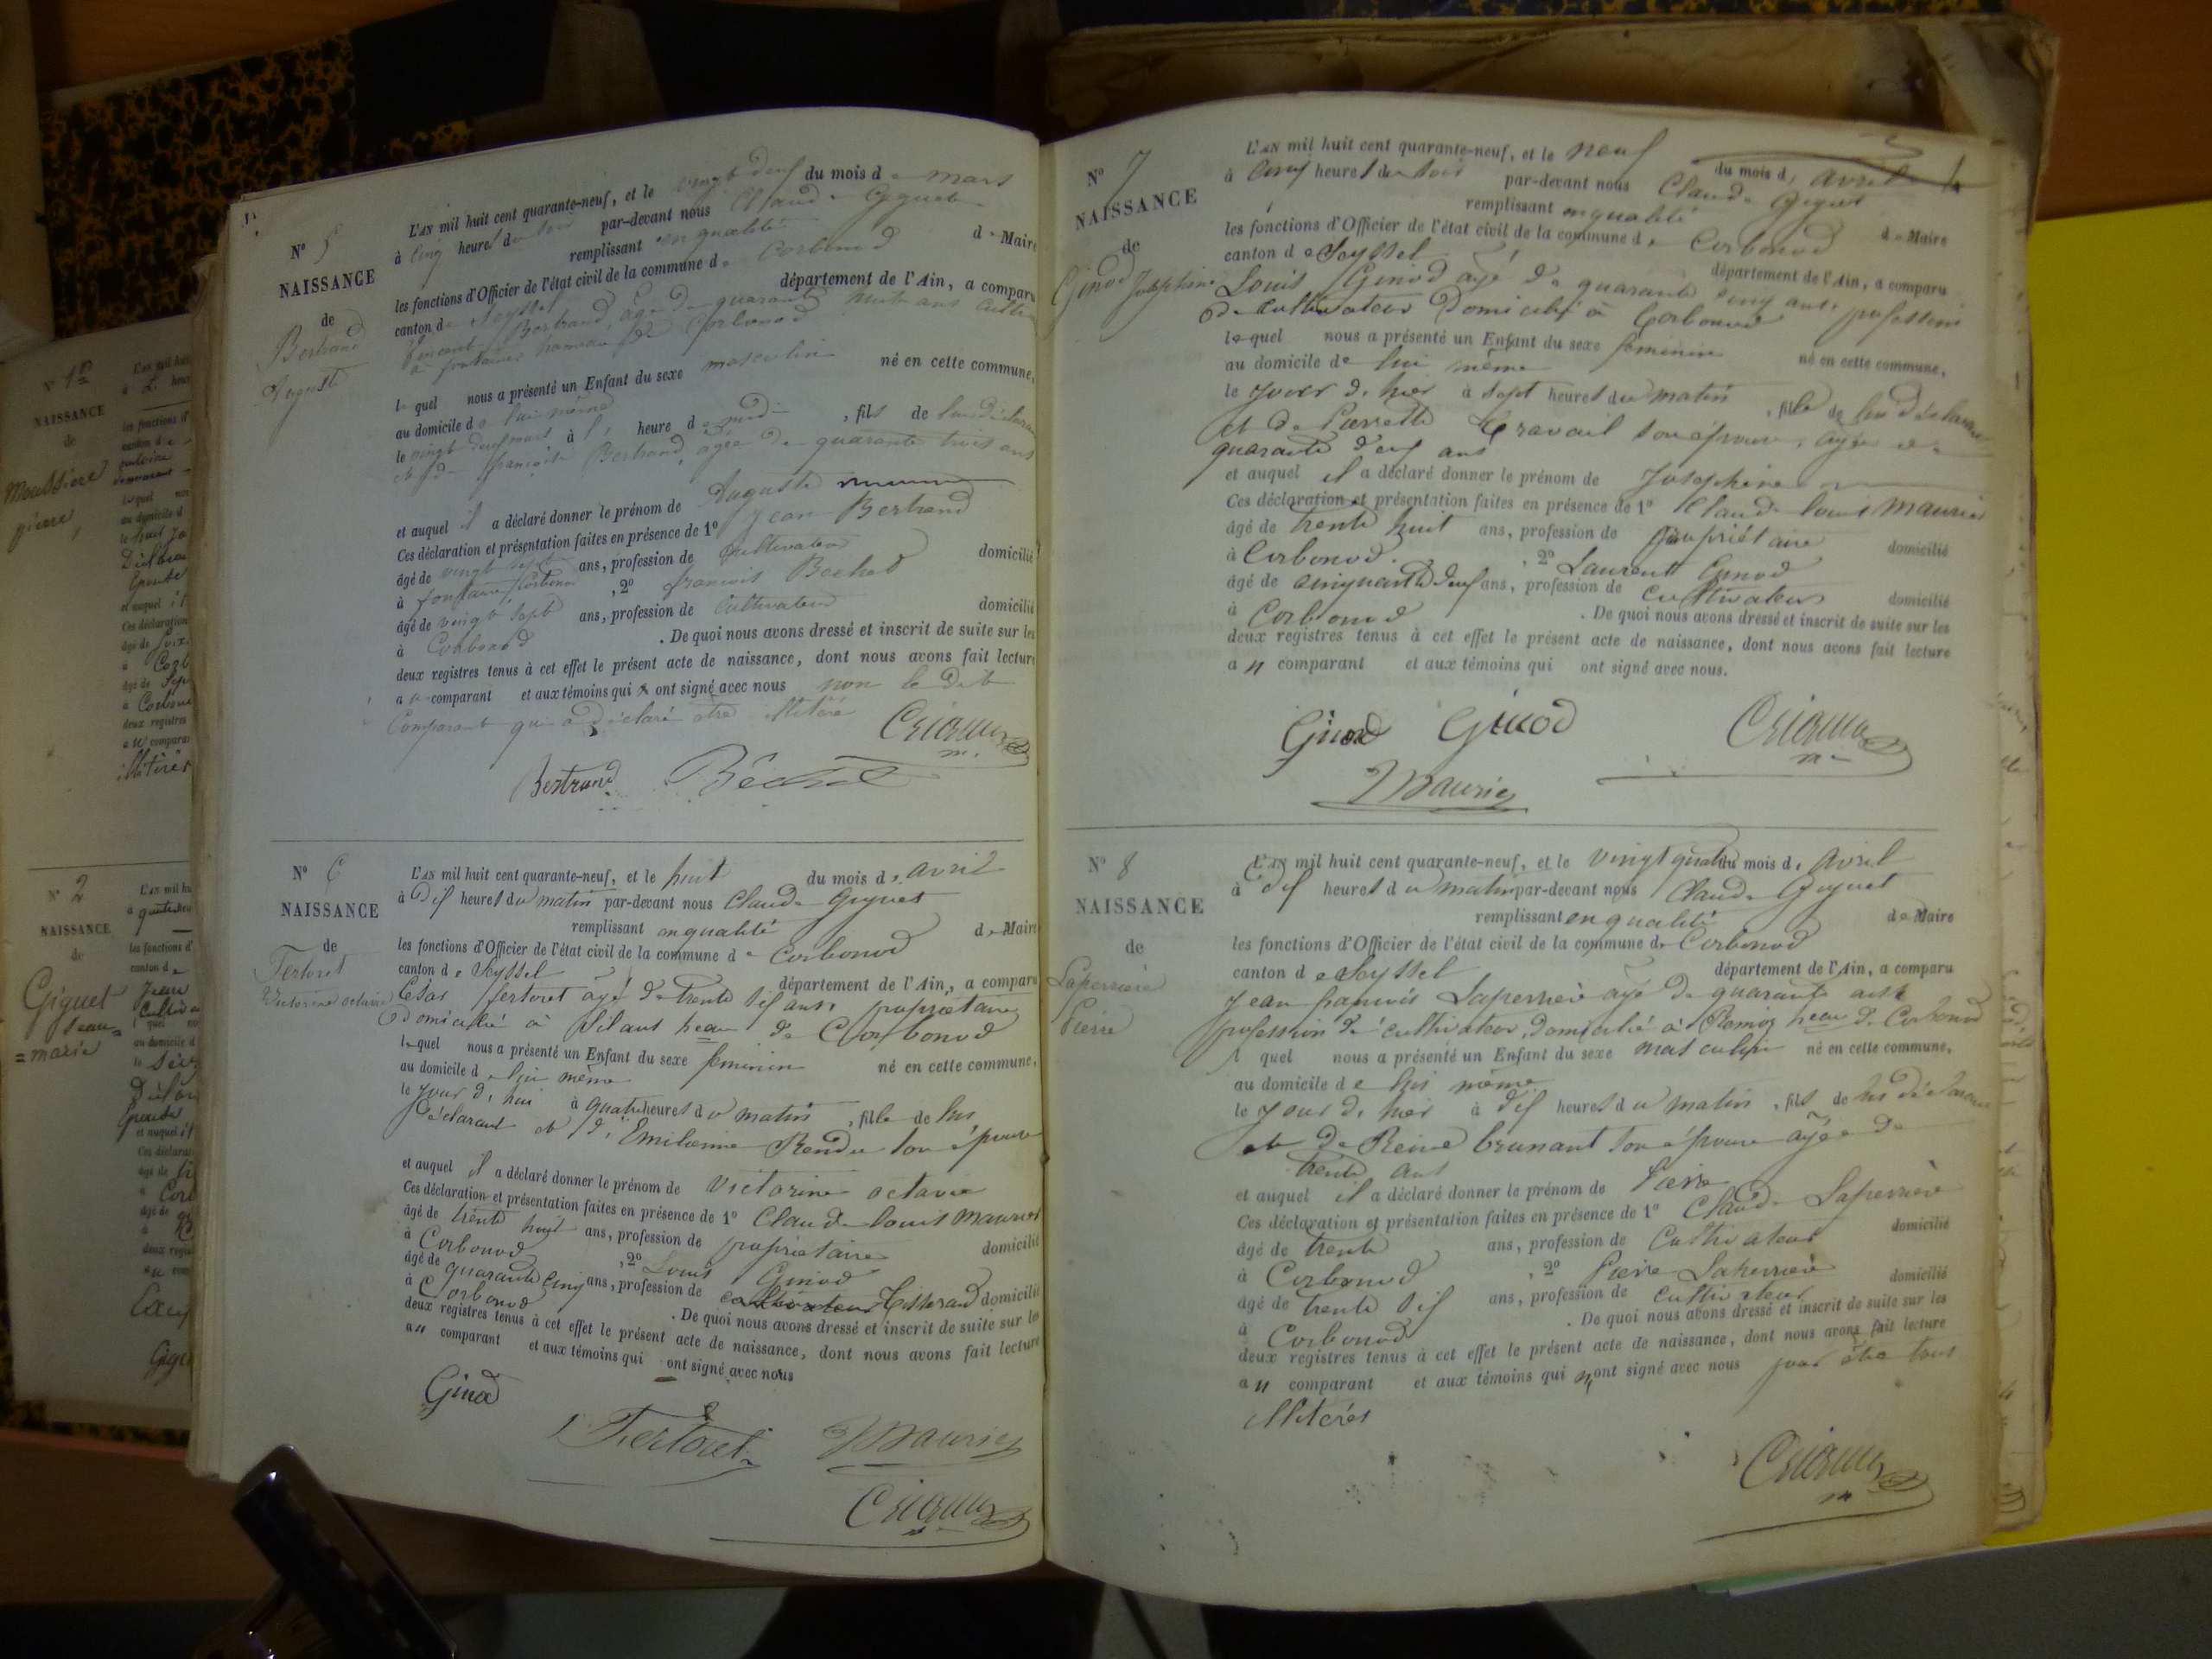 N° 5
NAISSANCE
de
Bertrand
Auguste
L'AN mil huit cent quarante-neuf, et le vingt deux du mois de mars
à cinq heures du soir par-devant nous Claude Giguet
remplissant en qualité de Maire
les fonctions d'Officier de l'état civil de la commune de Corbonod
canton de Seyssel département de l'Ain, a comparu
Vincent Bertrand, âgé de quarante huit ans
à fontaine hameau de Corbonod
lequel nous a présenté un Enfant du sexe masculin né en cette commune,
au domicile de lui même
le vingt deux mars à heure de midi, fils de lui déclarant
et de françoise Bertrand, âgée de quarante trois ans
et auquel il a déclaré donner le prénom de Auguste
Ces déclaration et présentation faites en présence de 1° Jean Bertrand
âgé de vingt sept ans, profession de cultivateur domicilié
à fontaine Corbonod, 2° francois Bechet
âgé de vingt sept ans, profession de Cultivateur domicilié
à Corbonod. De quoi nous avons dressé et inscrit de suite sur les
deux registres tenus à cet effet le présent acte de naissance, dont nous avons fait lecture
au comparant et aux témoins qui ont signé avec nous non le dit
Comparant qui a déclaré être illitéré
Bertrand
N° 6
NAISSANCE
de
Fertoret
Victorine octavie
L'AN mil huit cent quarante-neuf, et le huit du mois de avril
à dix heures du matin par-devant nous Claude Giguet
remplissant en qualité de Maire
les fonctions d'Officier de l'état civil de la commune de Corbonod
canton de Seyssel département de l'Ain, a comparu
César fertoret âgé de trente six ans, propriétaire
domicilié à Silans heau de Corbonod
lequel nous a présenté un Enfant du sexe feminin né en cette commune,
au domicile de lui même
le jour d'hui à quatre heures du matin, fille de lui
déclarant et d'Emilienne Rendu son épouse
et auquel il a déclaré donner le prénom de victorine octavie
Ces déclaration et présentation faites en présence de 1° Claude louis Maurier
âgé de trente huit ans, profession de propriétaire domicilié
à Corbonod, 2° Louis Ginod
âgé de quarante cinq ans, profession de cultivateur Tisserand domicilié
à Corbonod. De quoi nous avons dressé et inscrit de suite sur les
deux registres tenus à cet effet le présent acte de naissance, dont nous avons fait lecture
au comparant et aux témoins qui ont signé avec nous
Ginod
Fertoret Maurier
N° 7
NAISSANCE
de
Ginod Joséphine
L'AN mil huit cent quarante-neuf, et le neuf du mois d'avril
à cinq heures du soir par-devant nous Claude Giguet
remplissant en qualité de Maire
les fonctions d'Officier de l'état civil de la commune de Corbonod
canton de Seyssel département de l'Ain, a comparu
Louis Ginod âgé de quarante cinq ans, profession
de cultivateur domicilié à Corbonod
lequel nous a présenté un Enfant du sexe féminin né en cette commune,
au domicile de lui même
le jour d'hier à sept heures du matin, fille de lui déclarant
et de Pierrette son épouse, âgée de
quarante deux ans
et auquel il a déclaré donner le prénom de Joséphine
Ces déclaration et présentation faites en présence de 1° Claude louis Maurier
âgé de trente huit ans, profession de propriétaire domicilié
à Corbonod. 2° Laurent Ginod
âgé de cinquante deux ans, profession de cultivateur domicilié
à Corbonod. De quoi nous avons dressé et inscrit de suite sur les
deux registres tenus à cet effet le présent acte de naissance, dont nous avons fait lecture
au comparant et aux témoins qui ont signé avec nous.
Ginod Ginod
Maurier
N° 8
NAISSANCE
de
Laperrière
Pierre
L'AN mil huit cent quarante-neuf, et le vingt quatre du mois d'Avril
à dix heures du matin par-devant nous Claude Giguet
remplissant en qualité de Maire
les fonctions d'Officier de l'état civil de la commune de Corbonod
canton de Seyssel département de l'Ain, a comparu
Jean françois Laperrière âgé de quarante ans
profession de cultivateur, domicilié à Romiez heau de Corbonod
lequel nous a présenté un Enfant du sexe masculin né en cette commune,
au domicile de lui même
le jour d'hier à dix heures du matin, fils de lui déclarant
et de Reine brunant son épouse âgée de
trente ans
et auquel il a déclaré donner le prénom de Pierre
Ces déclaration et présentation faites en présence de 1° Claude Laperrière
âgé de trente ans, profession de Cultivateur domicilié
à Corbonod, 2° Pierre Laperrière
âgé de trente six ans, profession de cultivateur domicilié
à Corbonod. De quoi nous avons dressé et inscrit de suite sur les
deux registres tenus à cet effet le présent acte de naissance, dont nous avons fait lecture
au comparant et aux témoins qui n'ont signé avec nous pour être tous
illitérés